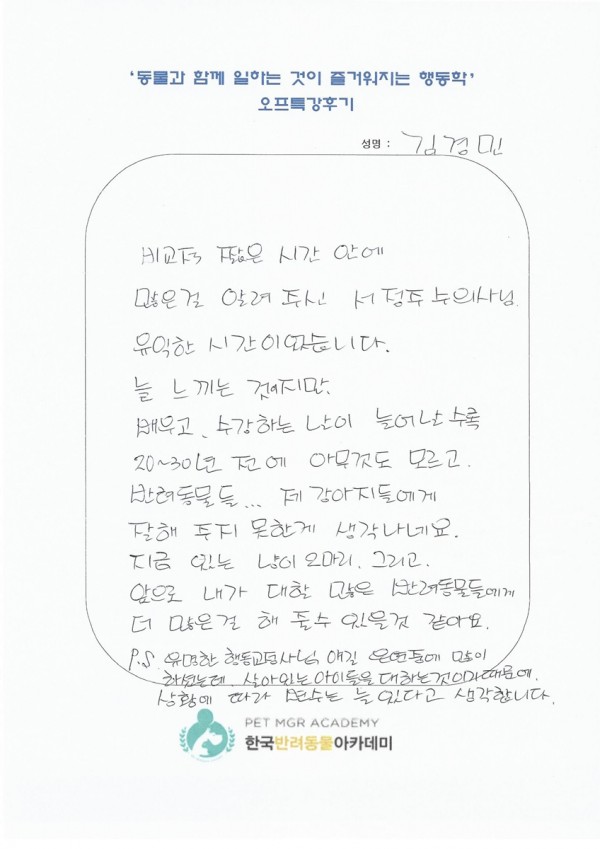 '동물과 함께 일하는 것이 즐거워지는 행동학'
오프특강후기
성명 : 김경민
비교적 짧은 시간 안에
많은걸 알려 주신 서정주 수의사님.
유익한 시간이었습니다.
늘 느끼는 것이지만,
배우고, 수강하는 날이 늘어날수록
20~30년 전에 아무것도 모르고.
반려동물들... 제 강아지들에게
잘해 주지 못한게 생각나네요.
지금 있는 냥이 오마리. 그리고.
앞으로 내가 대할 많은 반려동물들에게
더 많은걸 해 줄수 있을것 같아요.
P.S. 유명한 행동교정사님 얘길 은연중에 많이
하셨는데, 살아있는 아이들을 대하는것이기때문에.
상황에 따라 변수는 늘 있다고 생각합니다.
PET MGR ACADEMY
한국반려동물아카데미